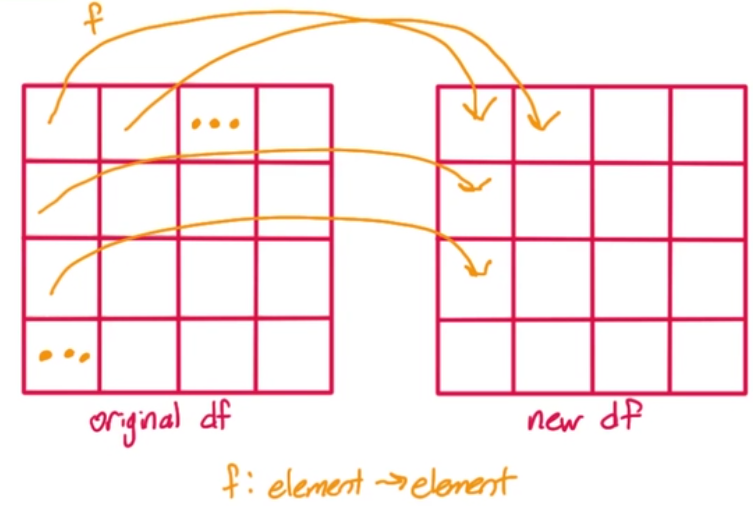 f
original df
new df
f: element → element